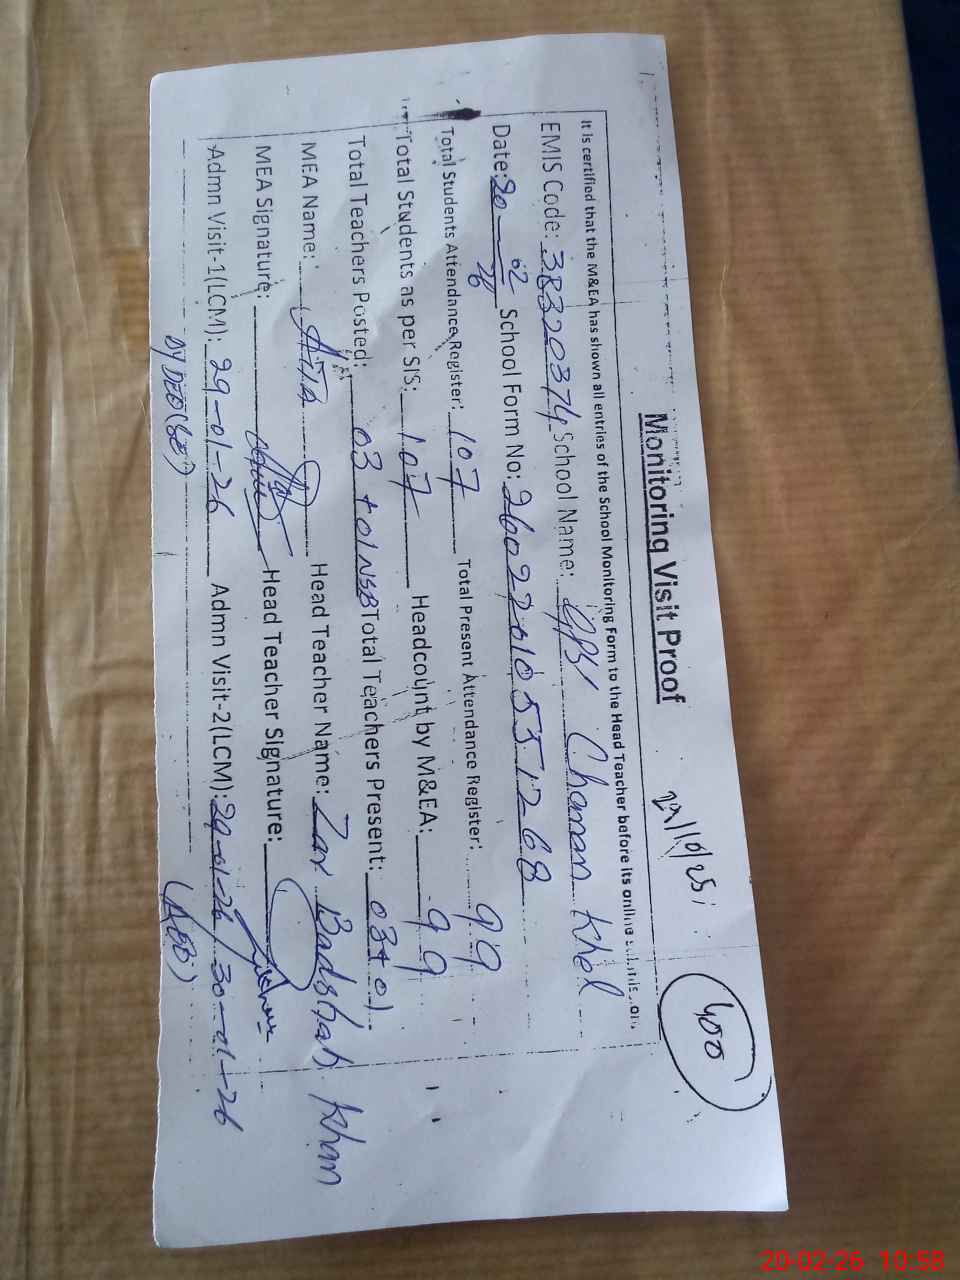 Monitoring Visit Proof 29/10/25 400
It is certified that the M&EA has shown all entries of the School Monitoring Form to the Head Teacher before its online submission.
EMIS Code: 38320374 School Name: GPS Chaman Khel
Date: 20-02-26 School Form No: 26022010551268
Total Students Attendance Register: 107 Total Present Attendance Register: 99
Total Students as per SIS: 107 Headcount by M&EA: 99
Total Teachers Posted: 03+01NSB Total Teachers Present: 03+01
MEA Name: Head Teacher Name: Zar Badshah Khan
MEA Signature: Head Teacher Signature:
Admn Visit-1(LCM): 29-01-26 Admn Visit-2(LCM): 29-01-26/30-01-26
20-02-26 10:58